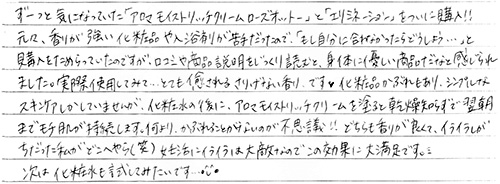 ずーっと気になっていた「アロマモイストリッチクリームローズオットー」と「エリシネーション」をついに購入!!
元々、香りが強い化粧品や入浴剤が苦手だったので、「もし自分に合わなかったらどうしよう…」と
購入をためらっていたのですが、口コミや商品説明をじっくり読むと、身体に優しい商品だなと感じられ
ました。実際使用してみて…とても癒されるさりげない香りです♥化粧品かぶれもあり、シンプルな
スキンケアしかしていませんが、化粧水の後に、アロマモイストリッチクリームを塗ると乾燥知らずで翌朝
までモチ肌が持続します。何より、かぶれることがないのが不思議!!どちらも香りが良くて、イライラしが
ちだった私がどこへやら(笑)妊活にイライラは大敵なのでこの効果に大満足です。
次は化粧水も試してみたいです…